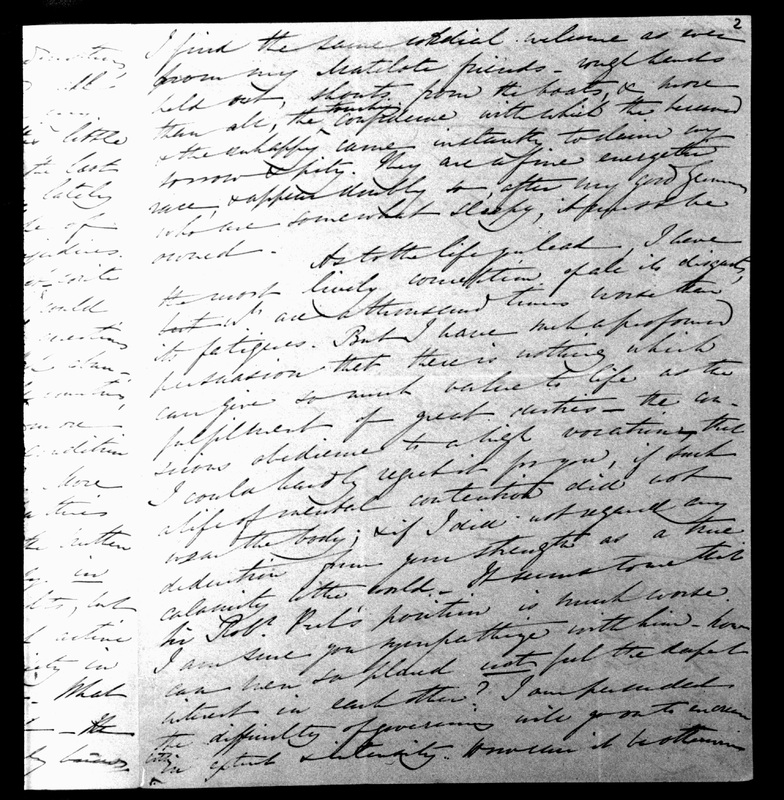 2
I find the same cordial welcome as ever
from my Matelote friends - rough hands
held out, shouts from the boats, & more
than all, the touching confidence with which the bereaved
& the unhappy came instantly to claim my
sorrow & pity. They are a fine energetic
race, & appear doubly so after my good Germans
who are somewhat sleepy, it must be
owned -
As to the life you lead, I have
the most lively conception of all its disgusts,
but wh. are a thousand times worse than
its fatigues. But I have such a profound
persuasion that there is nothing which
can give so much value to life as the
fulfilment of great duties - the an-
xious obedience to a high vocation, that
I could hardly regret it for you, if such
a life of mental contention did not
wear the body; & if I did not regard any
deduction from your strength as a true
calamity to the world - It seems to me that
Sir Robt. Peel's position is much worse.
I am sure you sympathize with him - how
can men so placed not feel the deepest
interest in each other? I am persuaded
the difficulty of governing will go on to increase
both in extent & intensity. How can it be otherwise
little
the last
lately
de of
could
question
more
condition
More
the
in
but
active
in
- What
- the